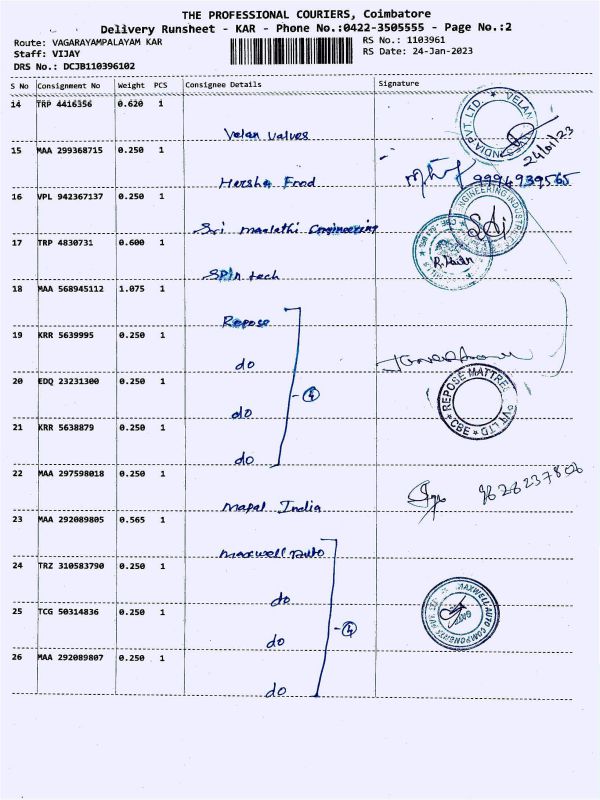 THE PROFESSIONAL COURIERS, Coimbatore
Delivery Runsheet - KAR - Phone No.:0422-3505555 - Page No.:2
Route: VAGARAYAMPALAYAM KAR
RS No.: 1103961
Staff: VIJAY
RS Date: 24-Jan-2023
DRS No.: DCJB110396102
S No Consignment No Weight PCS Consignee Details Signature
14 TRP 4416356 0.620 1
Velan Valves
VELAN INDIA PVT. LTD.
24/01/23
15 MAA 299368715 0.250 1
Harsha Food
9994939565
16 VPL 942367137 0.250 1
Sri Maalathi Engineering
ENGINEERING INDUSTRI
17 TRP 4830731 0.600 1
Spin tech
18 MAA 568945112 1.075 1
Repose
19 KRR 5639995 0.250 1
do
20 EDQ 23231300 0.250 1
do
4
REPOSE MATTRE PVT LTD
CBE
21 KRR 5638879 0.250 1
do
22 MAA 297598018 0.250 1
Mapal India
23 MAA 292089805 0.565 1
Maxwell Auto
24 TRZ 310583790 0.250 1
do
25 TCG 50314836 0.250 1
do
4
MAXWELL AUTO COMPONENTS
26 MAA 292089807 0.250 1
do